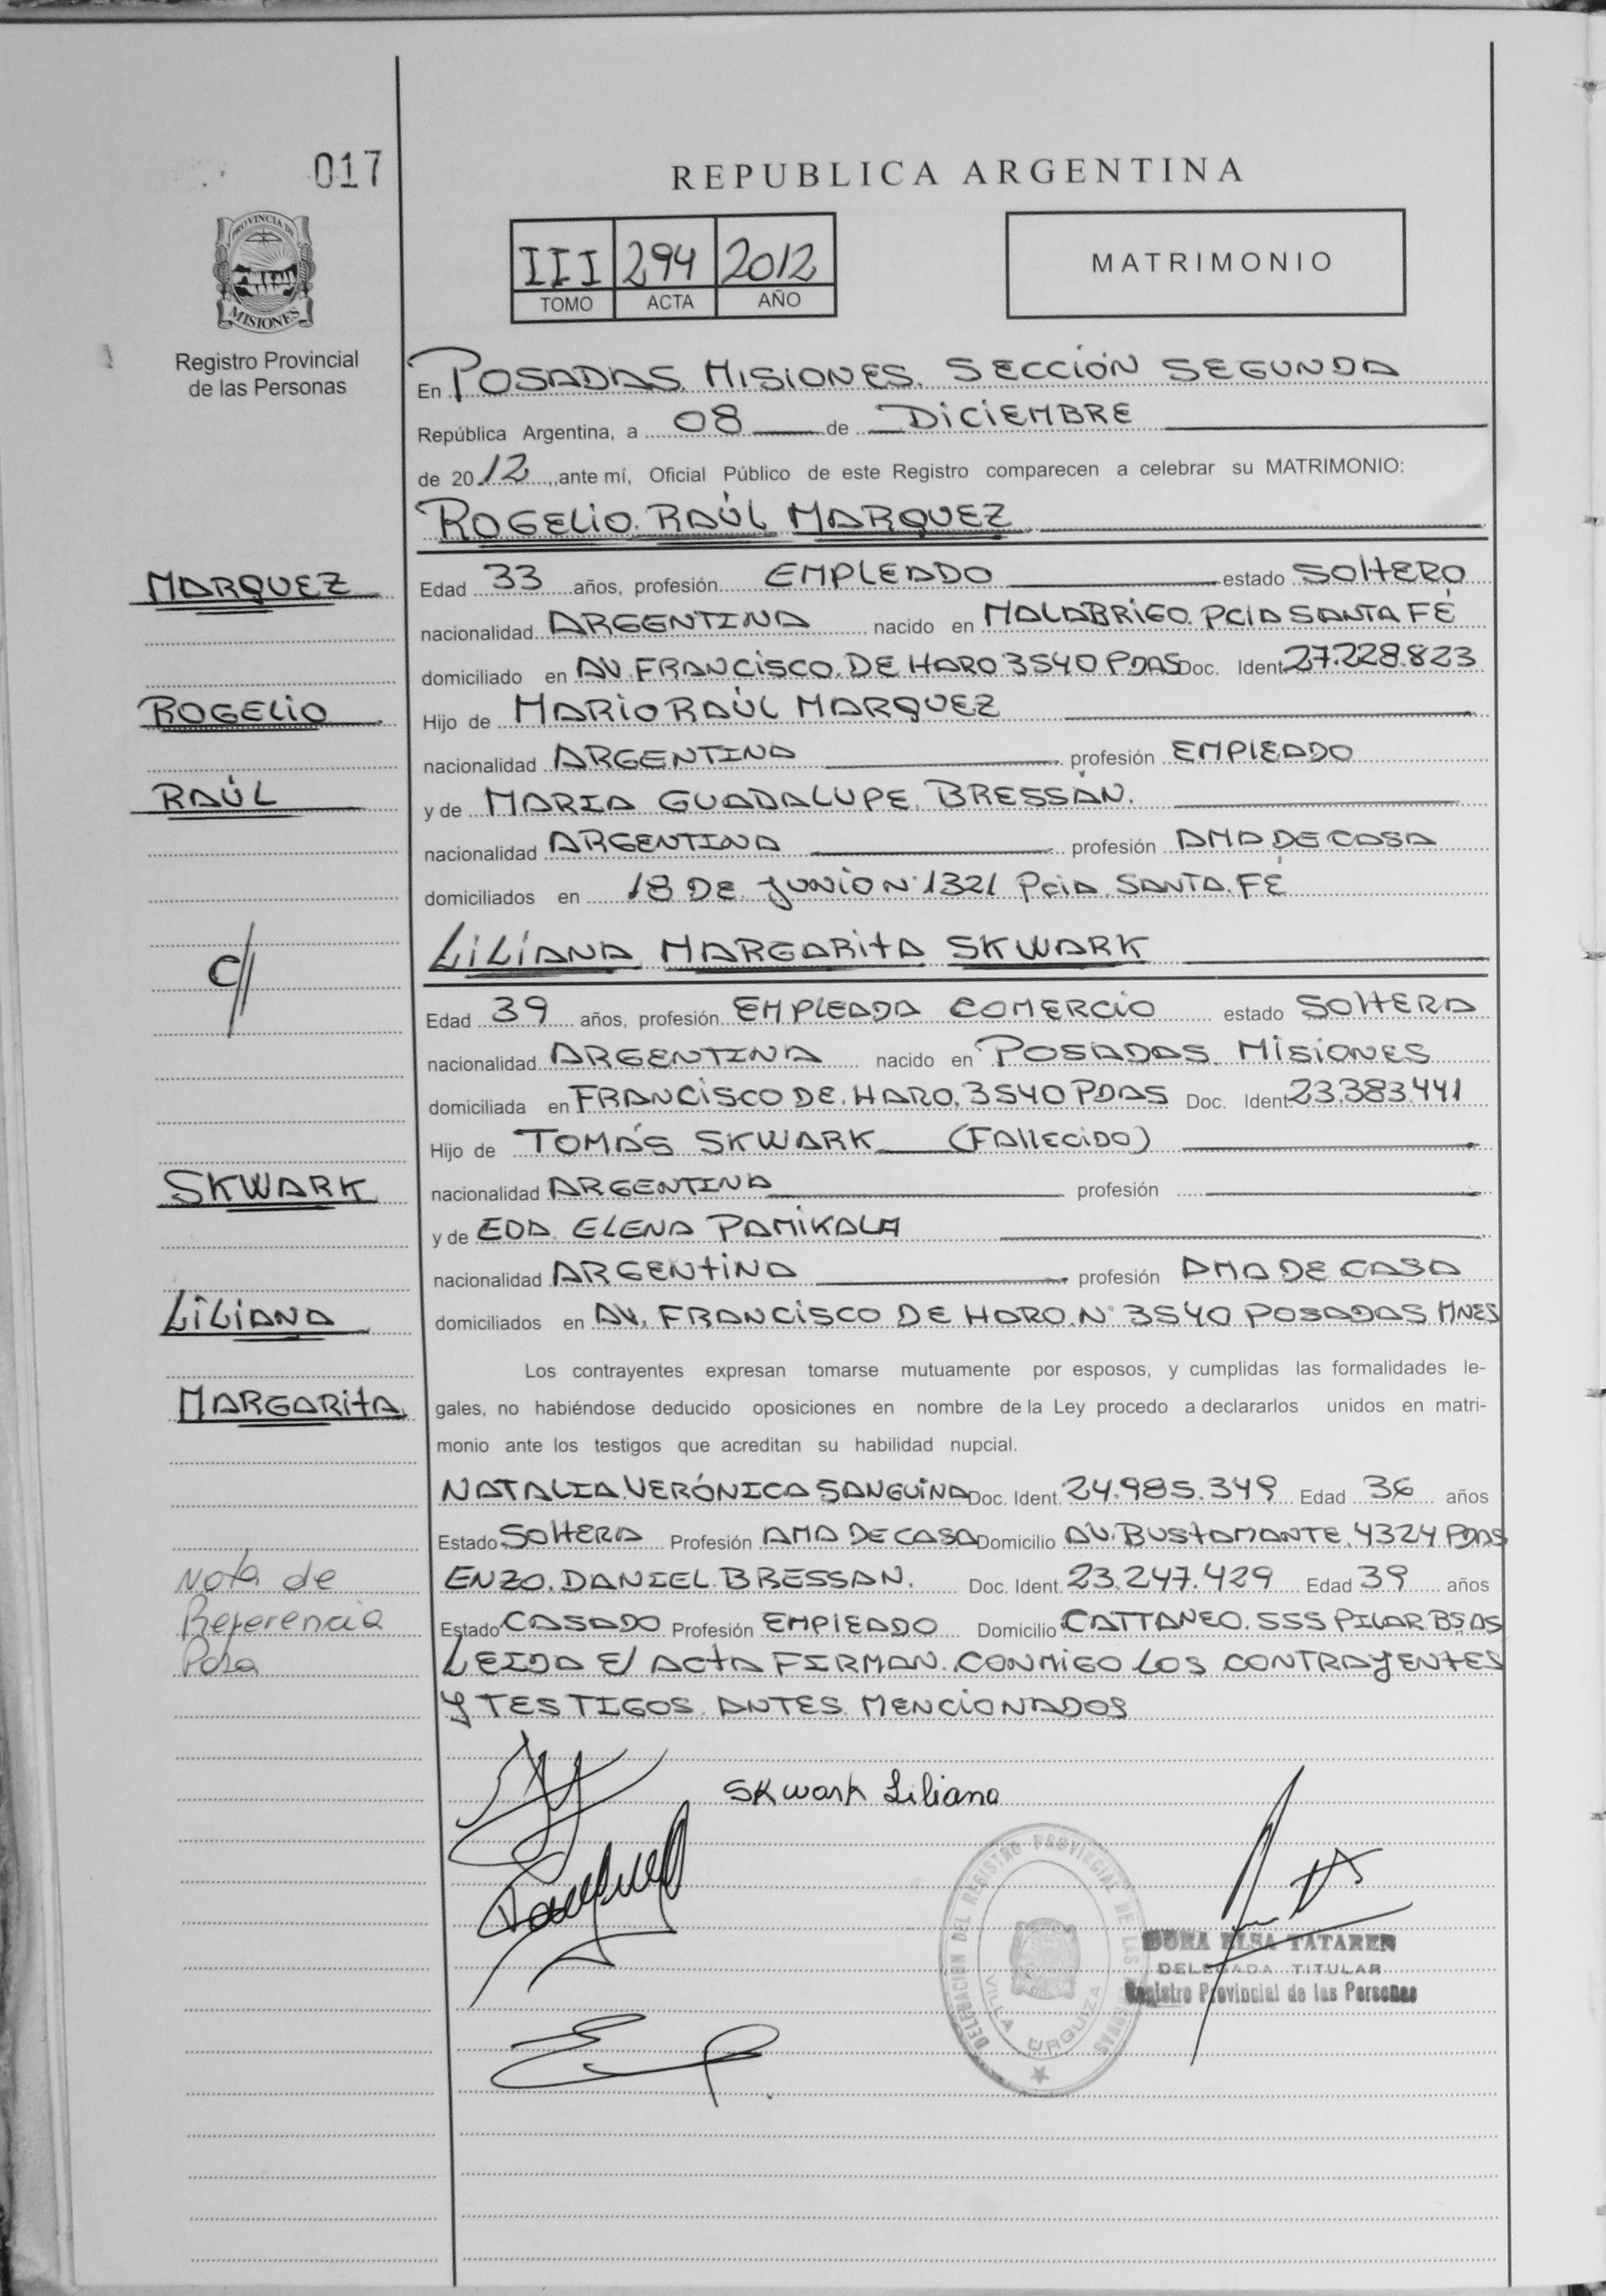 017
REPUBLICA ARGENTINA
PROVINCIA DE
MISIONES
Registro Provincial
de las Personas
III 294 2012
TOMO ACTA AÑO
MATRIMONIO
En POSADAS, MISIONES. SECCIÓN SEGUNDA
República Argentina, a 08 de DICIEMBRE
de 2012, ante mí, Oficial Público de este Registro comparecen a celebrar su MATRIMONIO:
ROGELIO RAÚL MARQUEZ
MARQUEZ
Edad 33 años, profesión EMPLEADO estado SOLTERO
nacionalidad ARGENTINA nacido en MALABRIGO PCIA SANTA FÉ
domiciliado en AV. FRANCISCO DE HARO 3540 PDAS Doc. Ident. 27.228.823
ROGELIO
Hijo de MARIO RAÚL MARQUEZ
nacionalidad ARGENTINA profesión EMPLEADO
RAÚL
y de MARIA GUADALUPE BRESSÁN.
nacionalidad ARGENTINA profesión AMA DE CASA
domiciliados en 18 DE JUNIO N° 1321 PCIA. SANTA FÉ
C//
LILIANA MARGARITA SKWARK
Edad 39 años, profesión EMPLEADA COMERCIO estado SOLTERA
nacionalidad ARGENTINA nacido en POSADAS. MISIONES
domiciliada en FRANCISCO DE HARO, 3540 PDAS Doc. Ident. 23.383.441
Hijo de TOMÁS SKWARK (FALLECIDO)
SKWARK
nacionalidad ARGENTINA profesión
y de EDA ELENA PAMIKALA
nacionalidad ARGENTINA profesión AMA DE CASA
LILIANA
domiciliados en AV. FRANCISCO DE HARO N° 3540 POSADAS MNES
Los contrayentes expresan tomarse mutuamente por esposos, y cumplidas las formalidades le-
MARGARITA
gales, no habiéndose deducido oposiciones en nombre de la Ley procedo a declararlos unidos en matri-
monio ante los testigos que acreditan su habilidad nupcial.
NATALIA VERÓNICA SANGUINA Doc. Ident. 24.985.349 Edad 36 años
Estado SOLTERA Profesión AMA DE CASA Domicilio AV. BUSTAMANTE 4324 PDAS
Nota de
ENZO DANIEL BRESSAN. Doc. Ident. 23.247.429 Edad 39 años
Referencia
Estado CASADO Profesión EMPLEADO Domicilio CATTANEO. 555 PILAR BS AS
Pasa
LEIDA El ACTA FIRMAN CONMIGO LOS CONTRAYENTES
Y TESTIGOS ANTES MENCIONADOS
Skwark Liliana
DELEGACION DEL REGISTRO PROVINCIAL DE LAS PERSONAS
VILLA URQUIZA
DORA ELSA TATAREN
DELEGADA TITULAR
Registro Provincial de las Personas